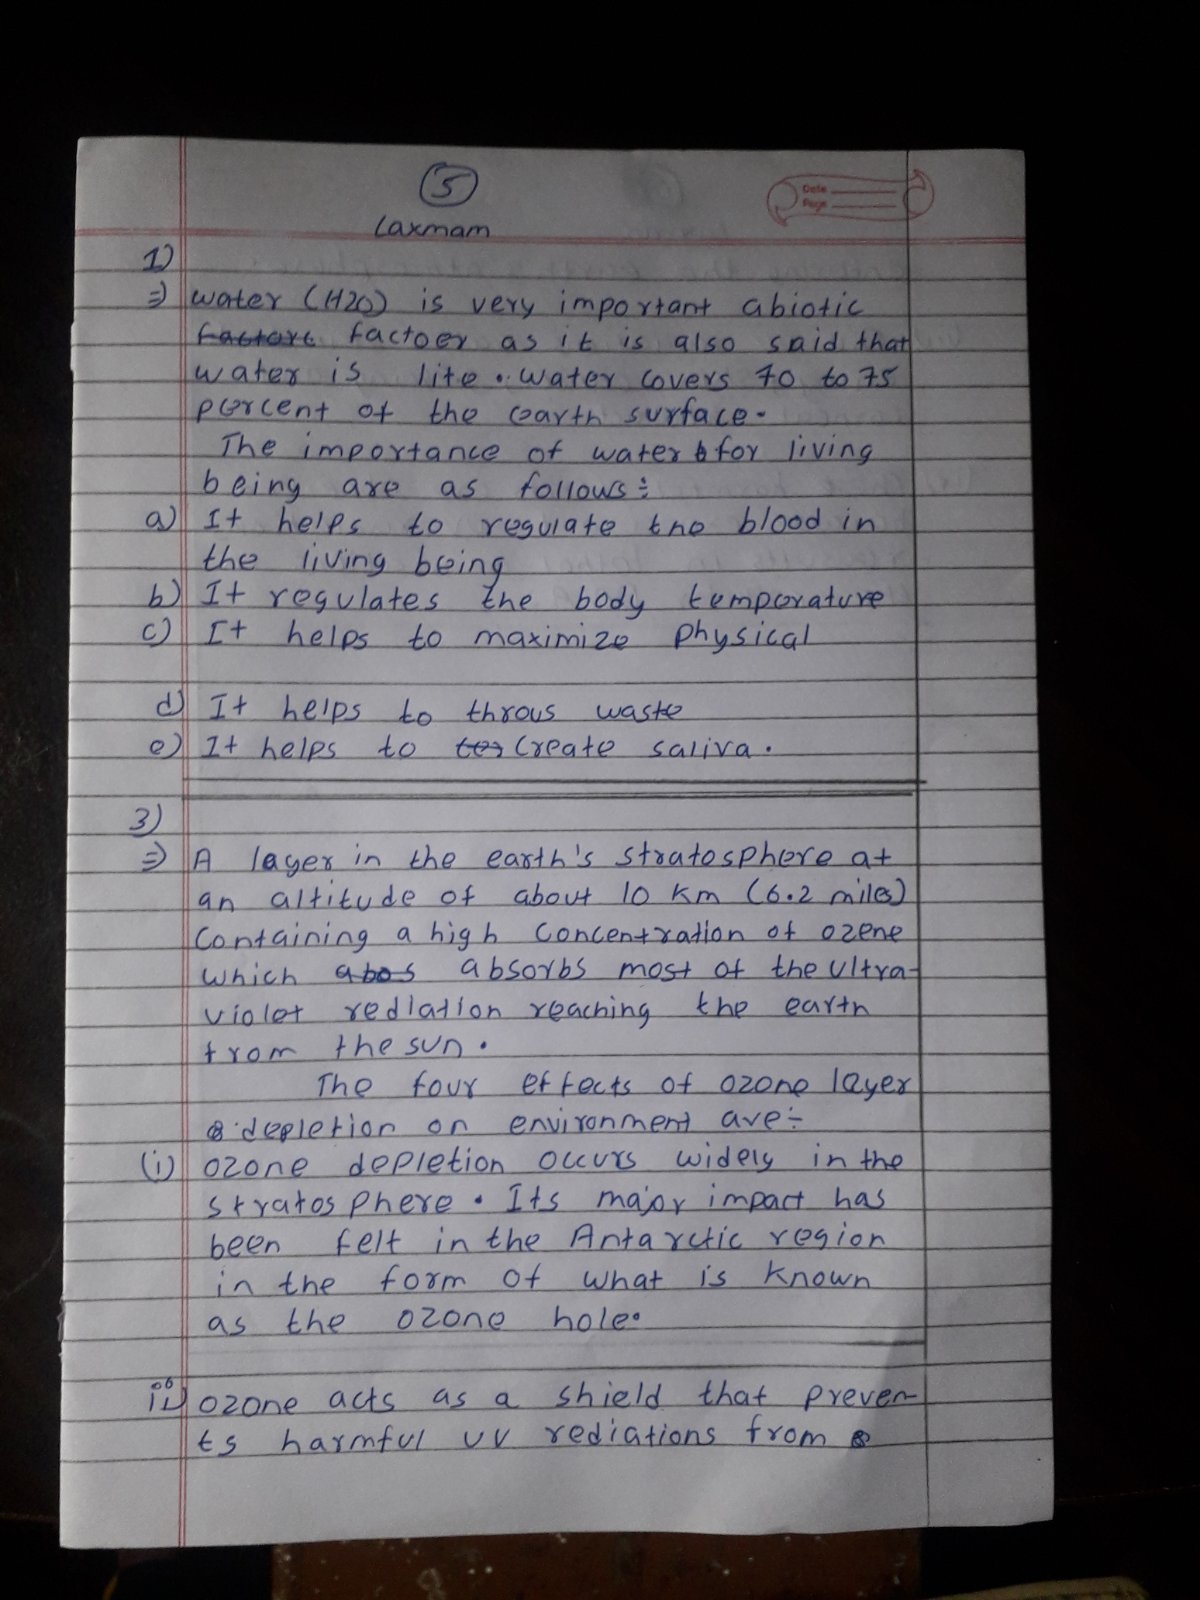 5
Laxmam
Date
Page
1)
⇒ water (H2O) is very important abiotic
factore factoer as it is also said that
water is lite. water covers 70 to 75
percent of the earth surface.
The importance of water for living
being are as follows:
a) It helps to regulate the blood in
the living being
b) It regulates the body temperature
c) It helps to maximize physical
d) It helps to throus waste
e) It helps to create saliva.
3)
⇒ A layer in the earth's stratosphere at
an altitude of about 10 Km (6.2 miles)
Containing a high Concentration of ozene
which abos absorbs most of the ultra-
violet rediation reaching the earth
from the sun.
The four effects of ozone layer
depletion on environment ave:-
(i) ozone depletion occurs widely in the
stratosphere. Its major impact has
been felt in the Antarctic region
in the form of what is Known
as the ozone hole.
ii) ozone acts as a shield that preven-
ts harmful uv rediations from